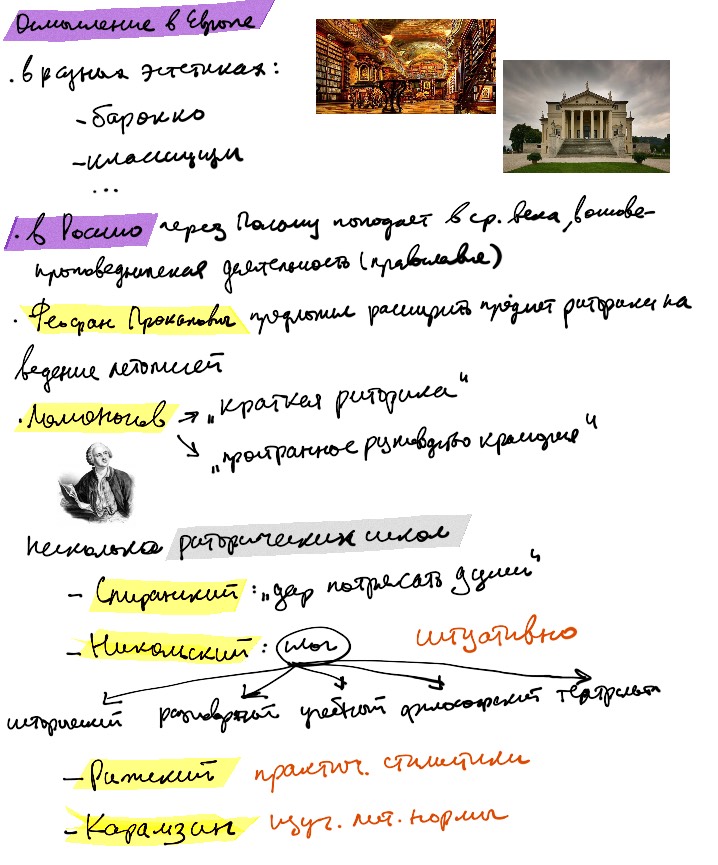 Осмысление в Европе
. в разных эстетиках:
- барокко
- классицизм
...
. в Россию через Польшу попадает в ср. века, в основе -
проповедническая деятельность (православие)
. Феофан Прокопович предложил расширить предмет риторики на
ведение летописей
. Ломоносов → „краткая риторика“
↘ „пространное руководство красноречия“
несколько риторических школ
- Сперанский: „дар потрясать души“
- Никольский: слог ситуативно
исторический разговорный учебный философский театральн
- Рижский практич. стилистики
- Карамзин изуч. лит. нормы